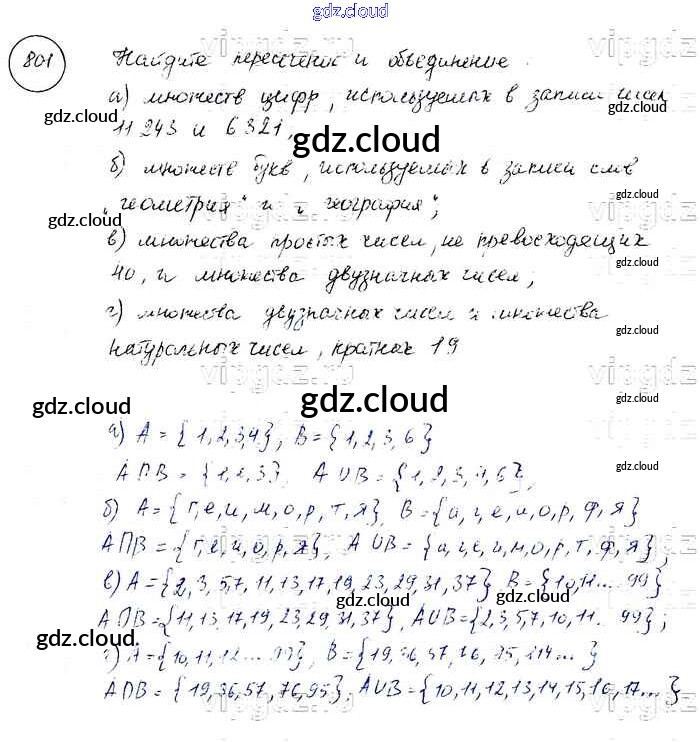 gdz.cloud
801 Найдите пересечение и объединение:
а) множеств цифр, используемых в записи чисел
11 243 и 6321,
б) множеств букв, используемых в записи слов
"геометрия" и "география";
в) множества простых чисел, не превосходящих
40, и множества двузначных чисел;
г) множества двузначных чисел и множества
натуральных чисел, кратных 19
а) A = {1,2,3,4}; B = {1,2,3,6}
A∩B = {1,2,3}, A∪B = {1,2,3,4,6},
б) A = {г,е,и,м,о,р,т,я}, B = {а,г,е,и,о,р,ф,я}
A∩B = {г,е,и,о,р,я}, A∪B = {а,г,е,и,м,о,р,т,ф,я}
в) A = {2,3,5,7,11,13,17,19,23,29,31,37} B = {10,11... 99}
A∩B = {11,13,17,19,23,29,31,37}, A∪B = {2,3,5,7,10,11.. 99};
г) A = {10,11,12... 99}, B = {19,36,57,76,95,114...}
A∩B = {19,36,57,76,95}, A∪B = {10,11,12,13,14,15,16,17...}